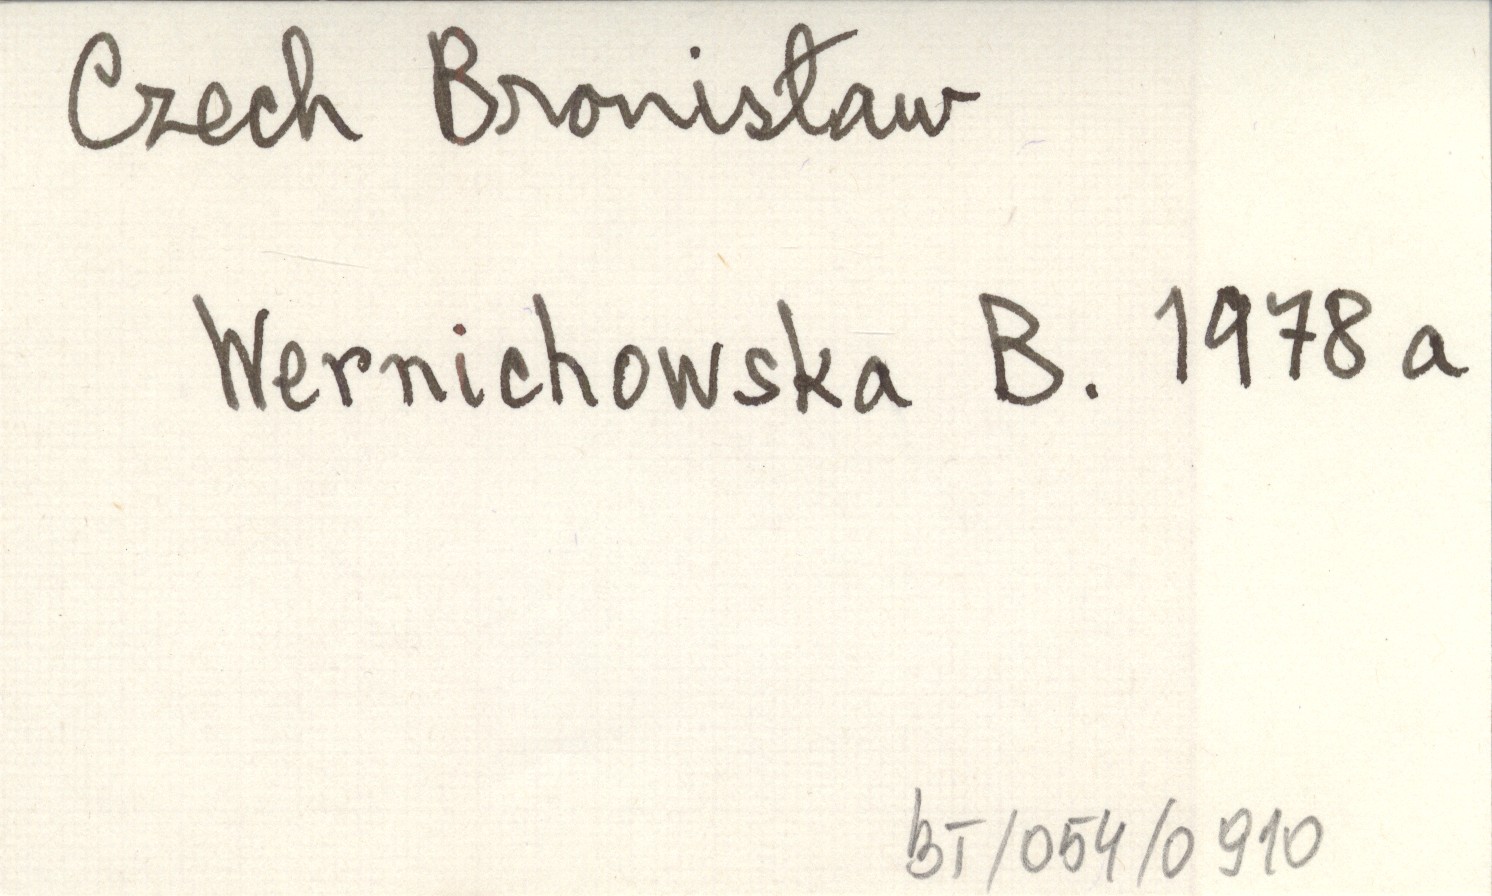 Czech Bronisław
Wernichowska B. 1978 a
BT/054/0910